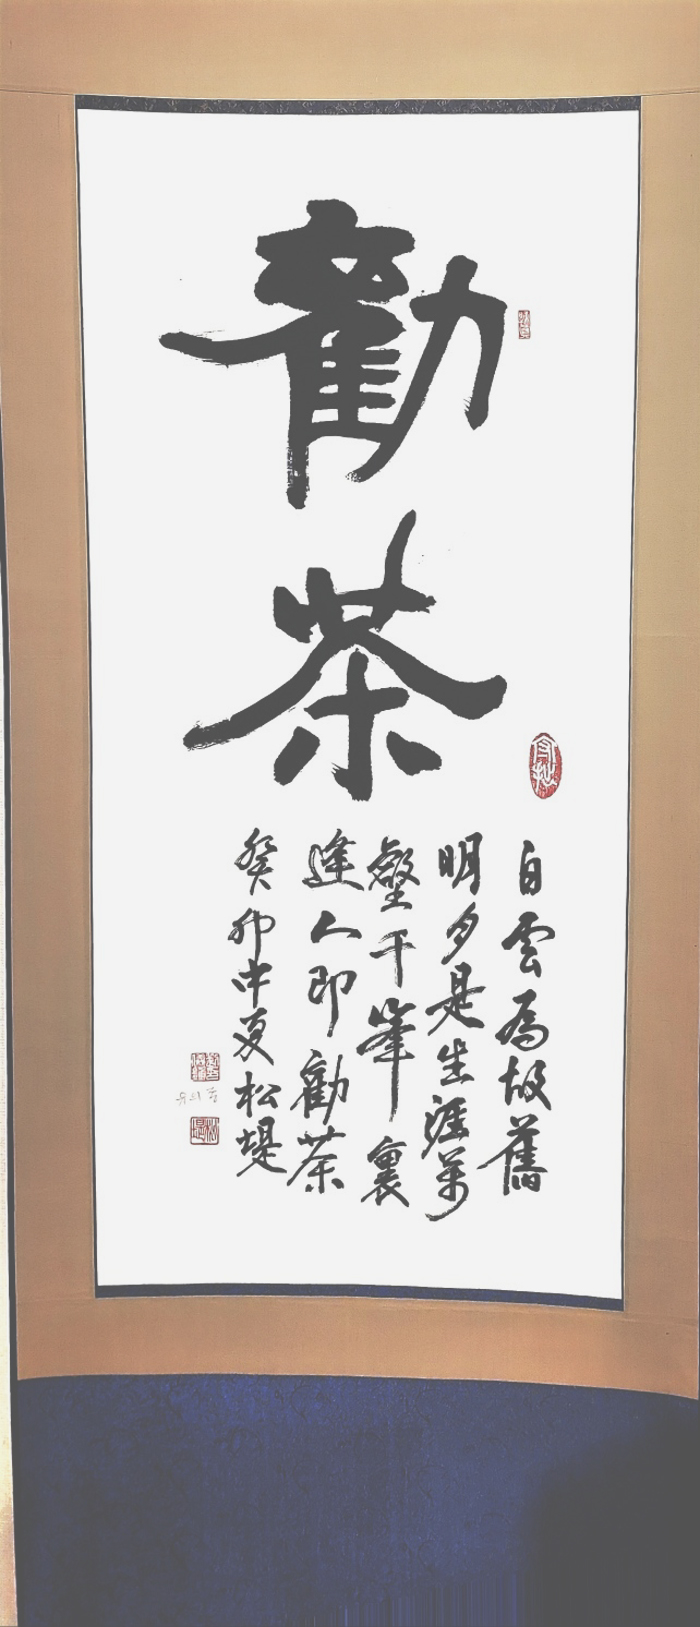 勸
茶
白雲爲故舊
明月是生涯萬
壑千峯裏
逢人卽勸茶
癸卯中夏 松堤